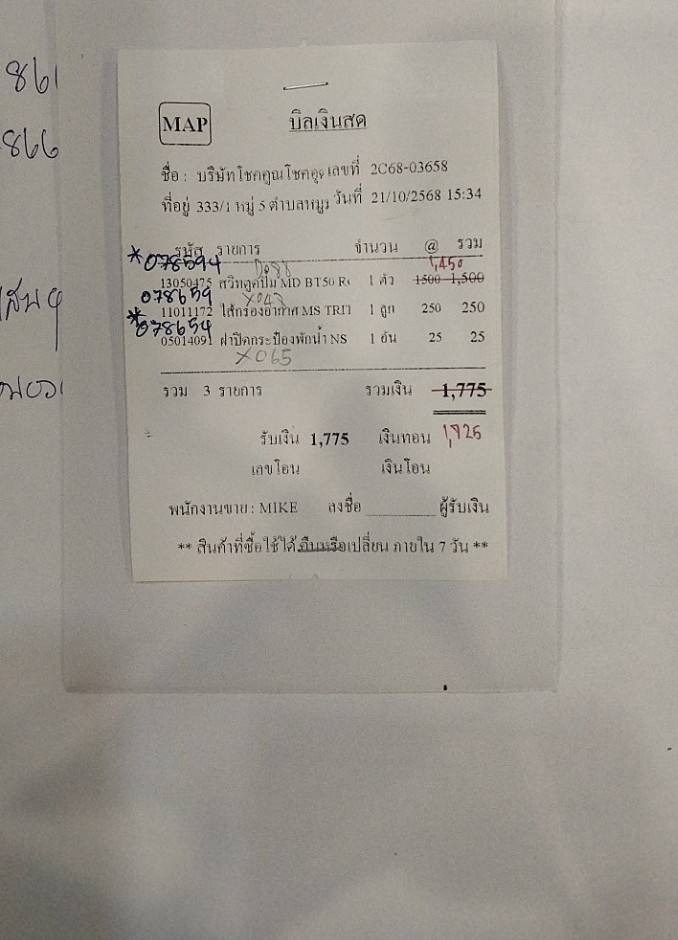 861
866
MAP บิลเงินสด
ชื่อ : บริษัทโชคคูณโชคคูง เลขที่ 2C68-03658
ที่อยู่ 333/1 หมู่ 5 ตำบลหมูง วันที่ 21/10/2568 15:34
รหัส รายการ จำนวน @ รวม
*078594 1,450
13050475 สวิทดูดปั๊ม MD BT50 1 ตัว 1500 1,500
078659 X043
11011172 ไส้กรองอากาศ MS TRIT 1 ลูก 250 250
*078654
05014091 ฝาปิดกระป๋องพักน้ำ NS 1 อัน 25 25
X065
รวม 3 รายการ รวมเงิน 1,775
รับเงิน 1,775 เงินทอน 1,725
เลขโอน เงินโอน
พนักงานขาย : MIKE ลงชื่อ ________ ผู้รับเงิน
** สินค้าที่ซื้อใช้ได้คืนหรือเปลี่ยน ภายใน 7 วัน **